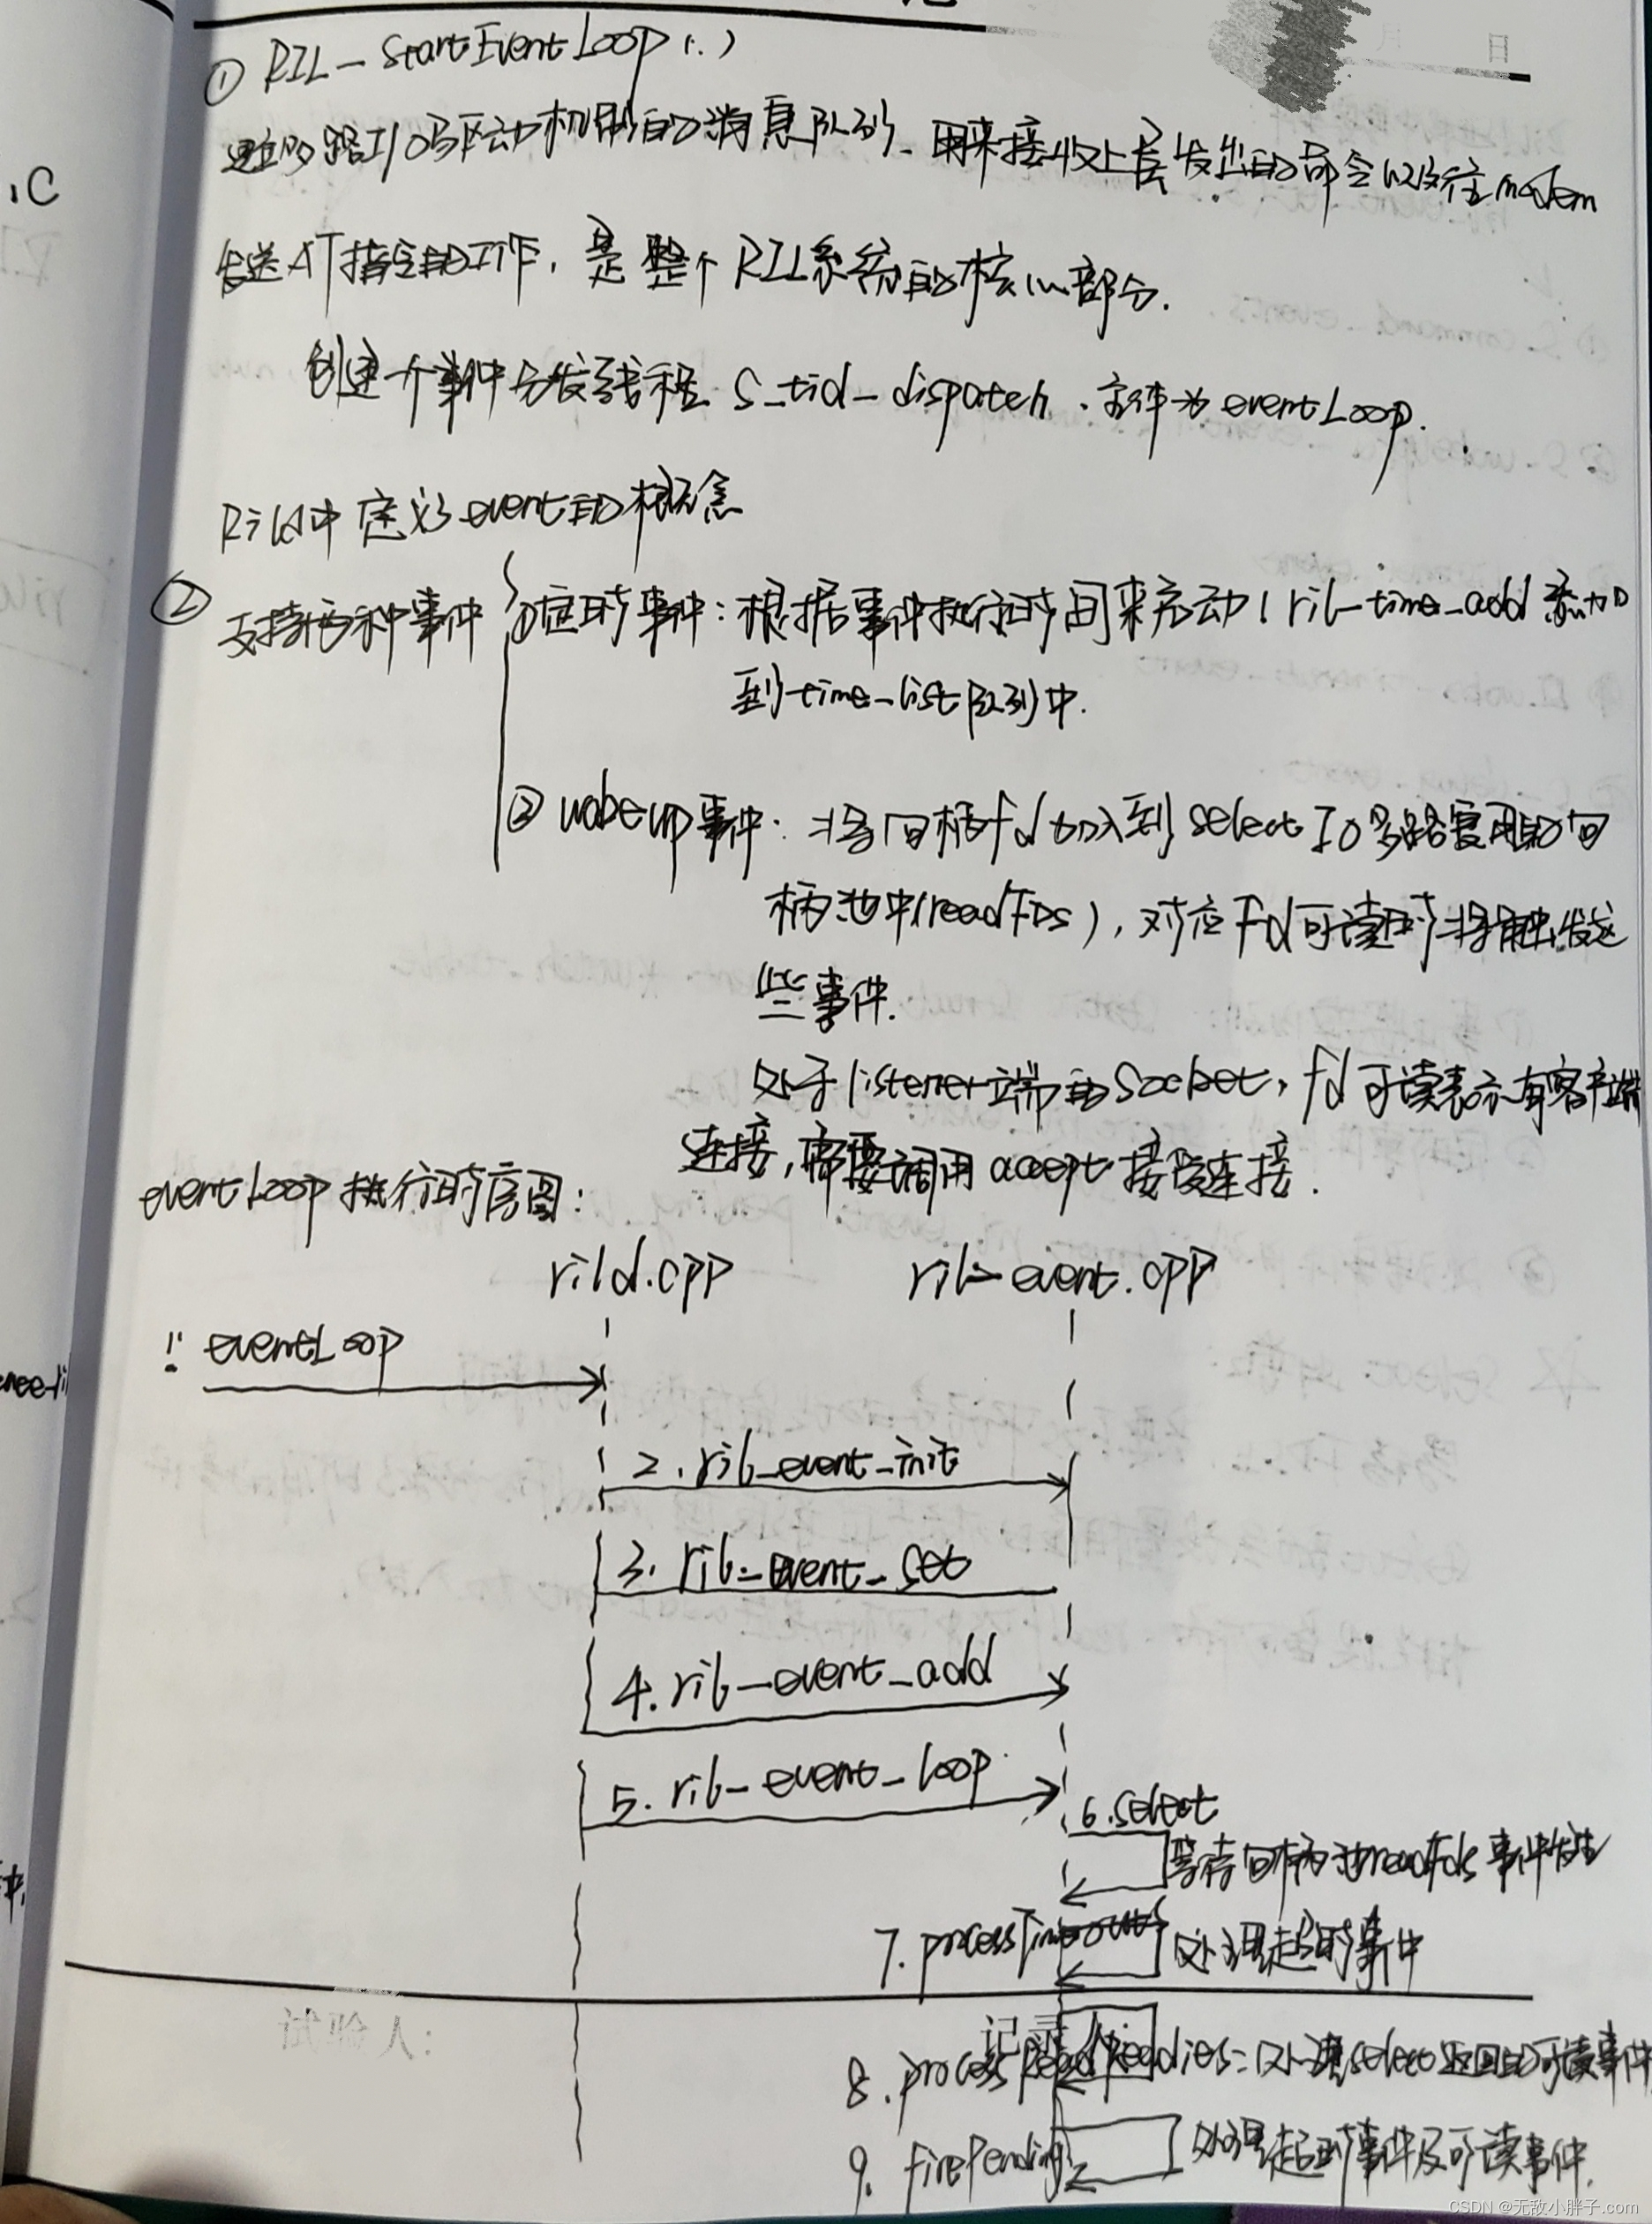 日
① RIL_startEventLoop(..)
建立多路I/O驱动机制的消息队列、用来接收上层发出的命令以及往modem
发送AT指令的工作，是整个RIL系统的核心部分.
创建一个事件分发线程 s_tid_dispatch、实体为eventLoop.
Rild中定义了event的概念
② 支持两种事件
①定时事件：根据事件执行时间来启动 ril_time_add 添加
到time_list队列中.
② wakeup事件：将句柄fd加入到select IO多路复用的句
柄池中(readFDs)，对应Fd可读时将触发这
些事件.
处于listener端的Socket，fd可读表示有客户端
连接，需要调用accept接受连接.
eventLoop执行时序图：
rild.cpp ril_event.cpp
eventLoop
2. ril_event_init
3. ril_event_set
4. ril_event_add
5. ril_event_loop
6. select
等待句柄池readfds事件发生
7. processTimeouts 处理超时事件
记录人:
8. processReadReadies: 处理select返回的可读事件
9. firePending 处理超时事件及可读事件.
.C
CSDN @无敌小胖子.com